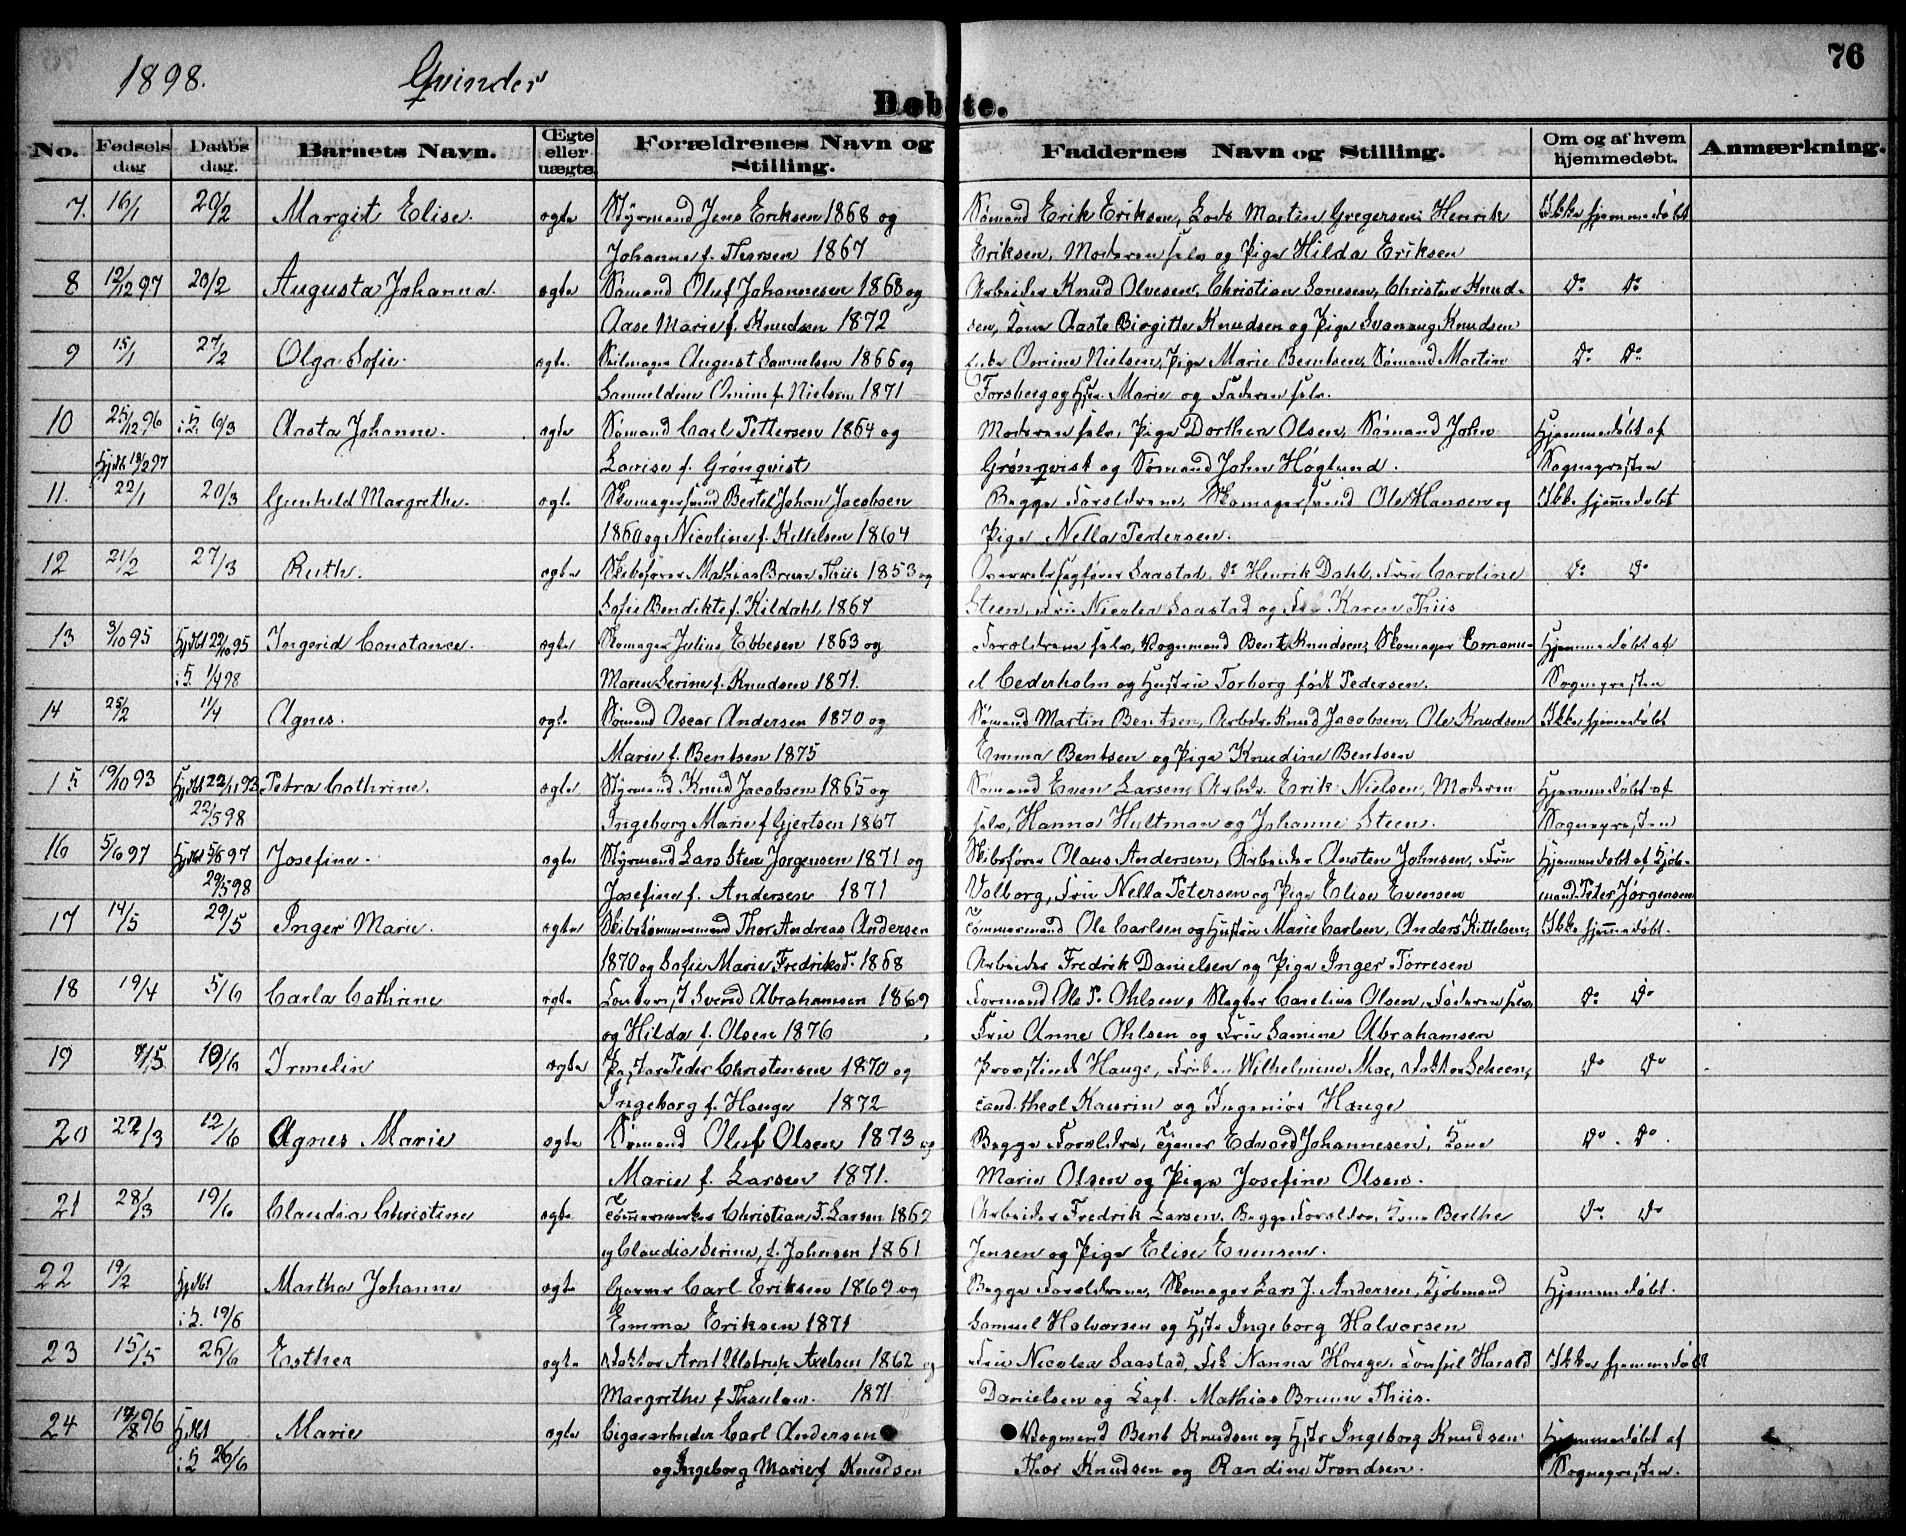 76
1898. Qvinder
Døbte.
No. Fødsels dag Daabs dag. Barnets Navn. Œgte eller uægte. Forældrenes Navn og Stilling. Faddernes Navn og Stilling. Om og af hvem hjemmedøbt. Anmærkning.
7. 16/1 20/2 Margit Elise. ægte Styrmand Jens Eriksen 1868 og Sømand Erik Eriksen, Lods Martin Gregersen, Henrik Ikke hjemmedøbt
Johanne f. Thorsen 1867 Eriksen, Moderen selv og Pige Hilda Eriksen
8 12/12 97 20/2 Augusta Johanna. ægte Sømand Oluf Johannesen 1868 og Arbeider Knud Olvesen, Christian Sørensen, Christen Knud- Do Do
Aase Marie f. Knudsen 1872 sen, Kone Aaste Birgitte Knudsen og Pige Svanaug Knudsen
9 15/1 27/2 Olga Sofie. ægte. Seilmager August Samuelsen 1866 og Enke Omine Nielsen, Pige Marie Bentsen, Sømand Martin Do Do
Samueldine Omine f. Nielsen 1871 Forsberg og Hstr. Marie og Faderen selv.
10 25/12 96 i K. 6/3 Aasta Johanne. ægte Sømand Carl Pettersen 1864 og Moderen selv, Pige Dorthea Olsen, Sømand John Hjemmedøbt af
Hjdbt 18/2 97 Lovise f. Grönqvist Grønqvist og Sømand John Höglund. Sognepresten
11. 22/1 20/3 Gunhild Margrethe. ægte Skomagersvend Bertel Johan Jacobsen Begge Forældrene, Skomagersvend Ole Hansen og Ikke hjemmedøbt
1860 og Nicoline f. Kittelsen 1864 Pige Nella Pedersen.
12 21/2 27/3 Ruth. ægte Skibsfører Mathias Bruun Thiis 1853 og Overretssagfører Saastad, Do Henrik Dahl, Fru Caroline Do Do
Sofie Bendikte f. Kildahl 1867 Steen, Fru Nicolea Saastad og Frk Karen Thiis
13 3/10 95 Hjdbt 22/10 95 Ingerid Constance. ægte Skomager Julius Ebbesen 1863 og Forældrene selv, Vognmand Bent Knudsen, Skomager Emanu- Hjemmedøbt af
i K. 1/4 98 Maren Serine f. Knudsen 1871. el Cederholm og Hustru Torborg født Pedersen. Sognepresten
14 25/2 11/4 Agnes. ægte Sømand Oscar Andersen 1870 og Sømand Martin Bentsen, Arbeider Knud Jacobsen, Ole Knudsen Ikke hjemmedøbt
Marie f. Bentsen 1875 Emma Bentsen og Pige Knudine Bentsen
15 19/10 93 Hjdbt 22/11 93 Petra Cathrine. ægte Styrmand Knud Jacobsen 1865 og Sømand Even Larsen, Arbeider Erik Nielsen, Moderen Hjemmedøbt af
22/5 98 Ingeborg Marie f Gjertsen 1867 selv, Hanna Hultman og Johanne Steen. Sognepresten
16 5/6 97 Hjdbt 5/6 97 Josefine. ægte Styrmand Lars Sten Jørgensen 1871 og Skibsfører Olaus Andersen, Arbeider Ansten Johnsen, Fru Hjemmedøbt af Kjøb-
29/5 98 Josefine f. Andersen 1871 Valborg, Fru Nella Petersen og Pige Elise Evensen mand Peter Jörgensen
17 14/5 29/5 Inger Marie. ægte Skibstømmermand Thor Andreas Andersen Tømmermand Ole Carlsen og Hustru Marie Carlsen, Anders Kittelsen, Ikke hjemmedøbt.
1870 og Sofie Marie Fredriksd. 1868 Arbeider Fredrik Danielsen og Pige Inger Torresen
18 19/4 5/6 Carla Cathrine ægte Svend Abrahamsen 1869 Formand Ole P. Ohlsen, Slagter Carelius Olsen, Faderen selv, Do Do
og Hilda f. Olsen 1876 Fru Anne Ohlsen og Fru Samine Abrahamsen
19 7/5 10/6 Irmelin ægte Pastor Peder Christensen 1870 og Provstinde Hauge, Frøken Wilhelmine Moe, Doktor Scheen, Do Do
Ingeborg f. Hauge 1872 cand. theol Kaurin og Ingeniør Hauge
20 22/3 12/6 Agnes Marie ægte Sømand Oluf Olsen 1873 og Begge Forældre, Tjener Edvard Johannesen, Kone Do. Do.
Marie f. Larsen 1871. Marie Olsen og Pige Josefine Olsen.
21 28/3 19/6 Claudia Christine ægte Tømmermerker Christian F. Larsen 1867 Arbeider Fredrik Larsen, Begge Forældre, Kone Berthe Do Do
og Claudia Serine, f. Johnsen 1861 Jensen og Pige Elise Evensen.
22 19/2 Hjdbt Martha Johanne ægte Garver Carl Eriksen 1869 og Begge Forældrene, Skomager Lars J. Andersen, Kjøbmand Hjemmedøbt.
i K. 19/6 Emma Eriksen 1871 Samuel Halvorsen og Hstr Ingeborg Halvorsen
23 15/5 26/6 Esther ægte Doktor Arnt Ulstrup Axelsen 1862 og Fru Nicolea Saastad, Frk Nanna Hauge, Konsul Harald Ikke hjemmedøbt
Margrethe f Thaulow. 1871 Danielsen og Capt. Mathias Bruun Thiis.
24 17/8 96 Hjdbt Marie ægte Cigararbeider Carl Andersen Vognmand Bent Knudsen og Hstr Ingeborg Knudsen Hjemmedøbt af
i K 26/6 og Ingeborg Marie f Knudsen Thor Knudsen og Randine Trondsen. Sognepresten.